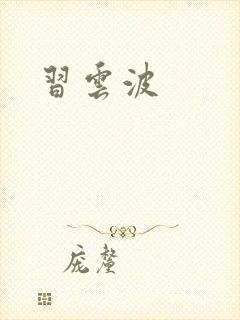 習雲波
庞蓥